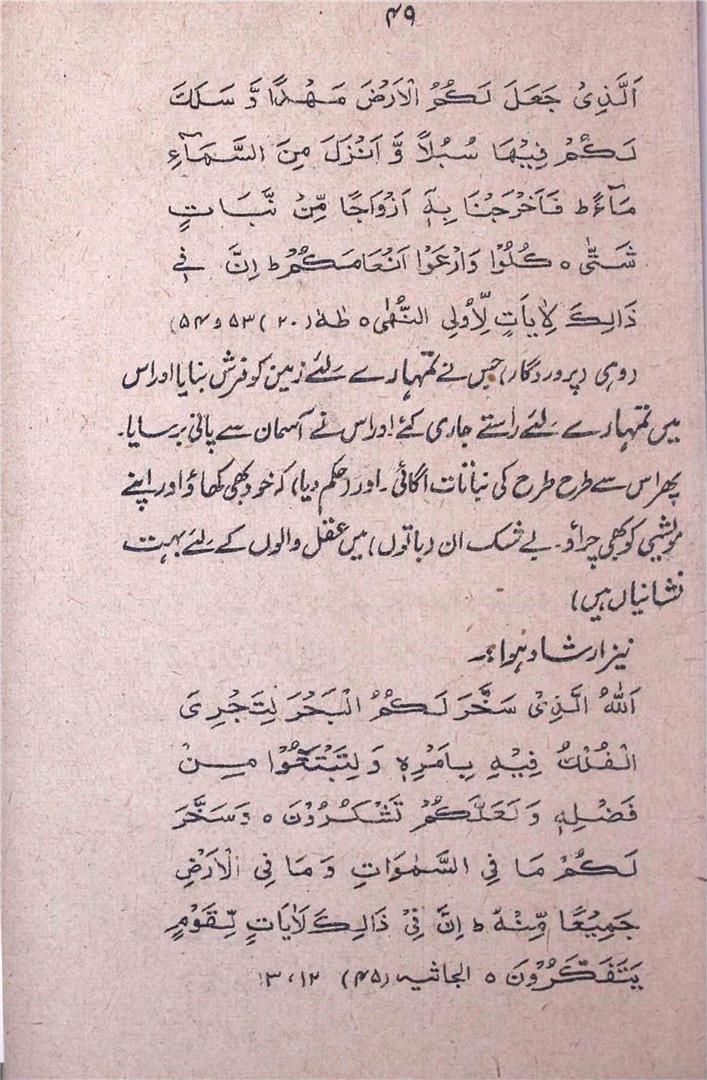 ۴۹
اَلَّذِیْ جَعَلَ لَکُمُ الْاَرْضَ مَهْدًا وَّ سَلَکَ
لَکُمْ فِیْهَا سُبُلاً وَّ اَنْزَلَ مِنَ السَّمَآءِ
مَآءً ط فَاَخْرَجْنَا بِهٖ اَزْوَاجًا مِّنْ نَّبَاتٍ
شَتّٰی ٥ کُلُوْا وَارْعَوْا اَنْعَامَکُمْ ط اِنَّ فِے
ذَالِکَ لِاٰیَاتٍ لِّاُولِی النُّهٰی ٥ طٰهٰ (۲۰) ۵۳ و ۵۴)
(وہی (پروردگار) جس نے تمہارے لئے زمین کو فرش بنایا اور اس
میں تمہارے لئے راستے جاری کئے اور اس نے آسمان سے پانی برسایا۔
پھر اس سے طرح طرح کی نباتات اگائی۔ اور (حکم دیا) کہ خود بھی کھاؤ اور اپنے
مویشی کو بھی چراؤ۔ بے شک ان (باتوں) میں عقل والوں کے لئے بہت
نشانیاں ہیں)
نیز ارشاد ہوا :۔
اَللّٰهُ الَّذِیْ سَخَّرَ لَکُمُ الْبَحْرَ لِتَجْرِیَ
الْفُلْكُ فِیْهِ بِاَمْرِهٖ وَ لِتَبْتَغُوْا مِنْ
فَضْلِهٖ وَ لَعَلَّکُمْ تَشْکُرُوْنَ ٥ وَسَخَّرَ
لَکُمْ مَا فِی السَّمٰوَاتِ وَ مَا فِی الْاَرْضِ
جَمِیْعًا مِّنْهُ ط اِنَّ فِیْ ذَالِکَ لَاٰیَاتٍ لِّقَوْمٍ
یَتَفَکَّرُوْنَ ٥ الجاثیہ (۴۵) ۱۲، ۱۳